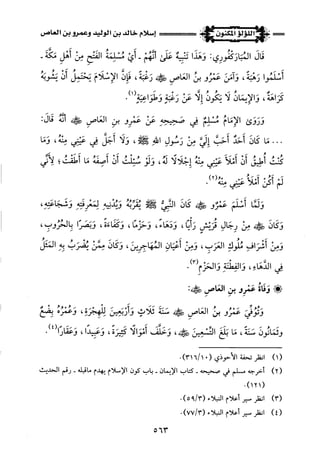 اللؤلؤ المكنون
إسلام خالد بن الوليد وعمرو بن العاص
قَالَ المُبَارَكْفُورِي: وَهَذَا تَنْبِيهٌ عَلَى أَنَّهُمْ - أَيْ مُسْلِمَةُ الفَتْحِ مِنْ أَهْلِ مَكَّةَ -
أَسْلَمُوا رَهْبَةً، وَآمَنَ عَمْرُو بنُ العَاصِ ﷺ رَغْبَةً، فَإِنَّ الإِسْلَامَ يَحْتَمِلُ أَنْ يَشُوبَهُ
كَرَاهَةٌ، وَالإِيمَانُ لَا يَكُونُ إِلَّا عَنْ رَغْبَةٍ وَطَوَاعِيَةٍ(١).
وَرَوَى الإِمَامُ مُسْلِمٌ فِي صَحِيحِهِ عَنْ عَمْرِو بنِ العَاصِ أَنَّهُ قَالَ:
... مَا كَانَ أَحَدٌ أَحَبَّ إِلَيَّ مِنْ رَسُولِ اللهِ ﷺ، وَلَا أَجَلَّ فِي عَيْنِي مِنْهُ، وَمَا
كُنْتُ أُطِيقُ أَنْ أَمْلَأَ عَيْنِي مِنْهُ إِجْلَالًا لَهُ، وَلَوْ سُئِلْتُ أَنْ أَصِفَهُ مَا أَطَقْتُ؛ لِأَنِّي
لَمْ أَكُنْ أَمْلَأُ عَيْنِي مِنْهُ(٢).
وَلَمَّا أَسْلَمَ عَمْرٌو كَانَ النَّبِيُّ ﷺ يُقَرِّبُهُ وَيُدْنِيهِ لِمَعْرِفَتِهِ وَشَجَاعَتِهِ،
وَكَانَ مِنْ رِجَالِ قُرَيْشٍ رَأْيًا، وَدَهَاءً، وَحَزْمًا، وَكَفَاءَةً، وَبَصَرًا بِالحُرُوبِ،
وَمِنْ أَشْرَافِ مُلُوكِ العَرَبِ، وَمِنْ أَعْيَانِ المُهَاجِرِينَ، وَكَانَ مِمَّنْ يُضْرَبُ بِهِ المَثَلُ
فِي الدَّهَاءِ، وَالفِطْنَةِ وَالحَزْمِ(٣).
وَفَاةُ عَمْرِو بنِ العَاصِ :
وَتُوُفِّيَ عَمْرُو بنُ العَاصِ سَنَةَ ثَلَاثٍ وَأَرْبَعِينَ لِلْهِجْرَةِ، وَعُمْرُهُ بِضْعٌ
وَثَمَانُونَ سَنَةً، مَا بَلَغَ التِّسْعِينَ، وَخَلَّفَ أَمْوَالًا كَثِيرَةً، وَعَبِيدًا، وَعَقَارًا(٤).
(١) انظر تحفة الأحوذي (٣١٦/١٠).
(٢) أخرجه مسلم في صحيحه - كتاب الإيمان - باب كون الإسلام يهدم ماقبله - رقم الحديث
(١٢١).
(٣) انظر سير أعلام النبلاء (٥٩/٣).
(٤) انظر سير أعلام النبلاء (٧٧/٣).
٥٦٣